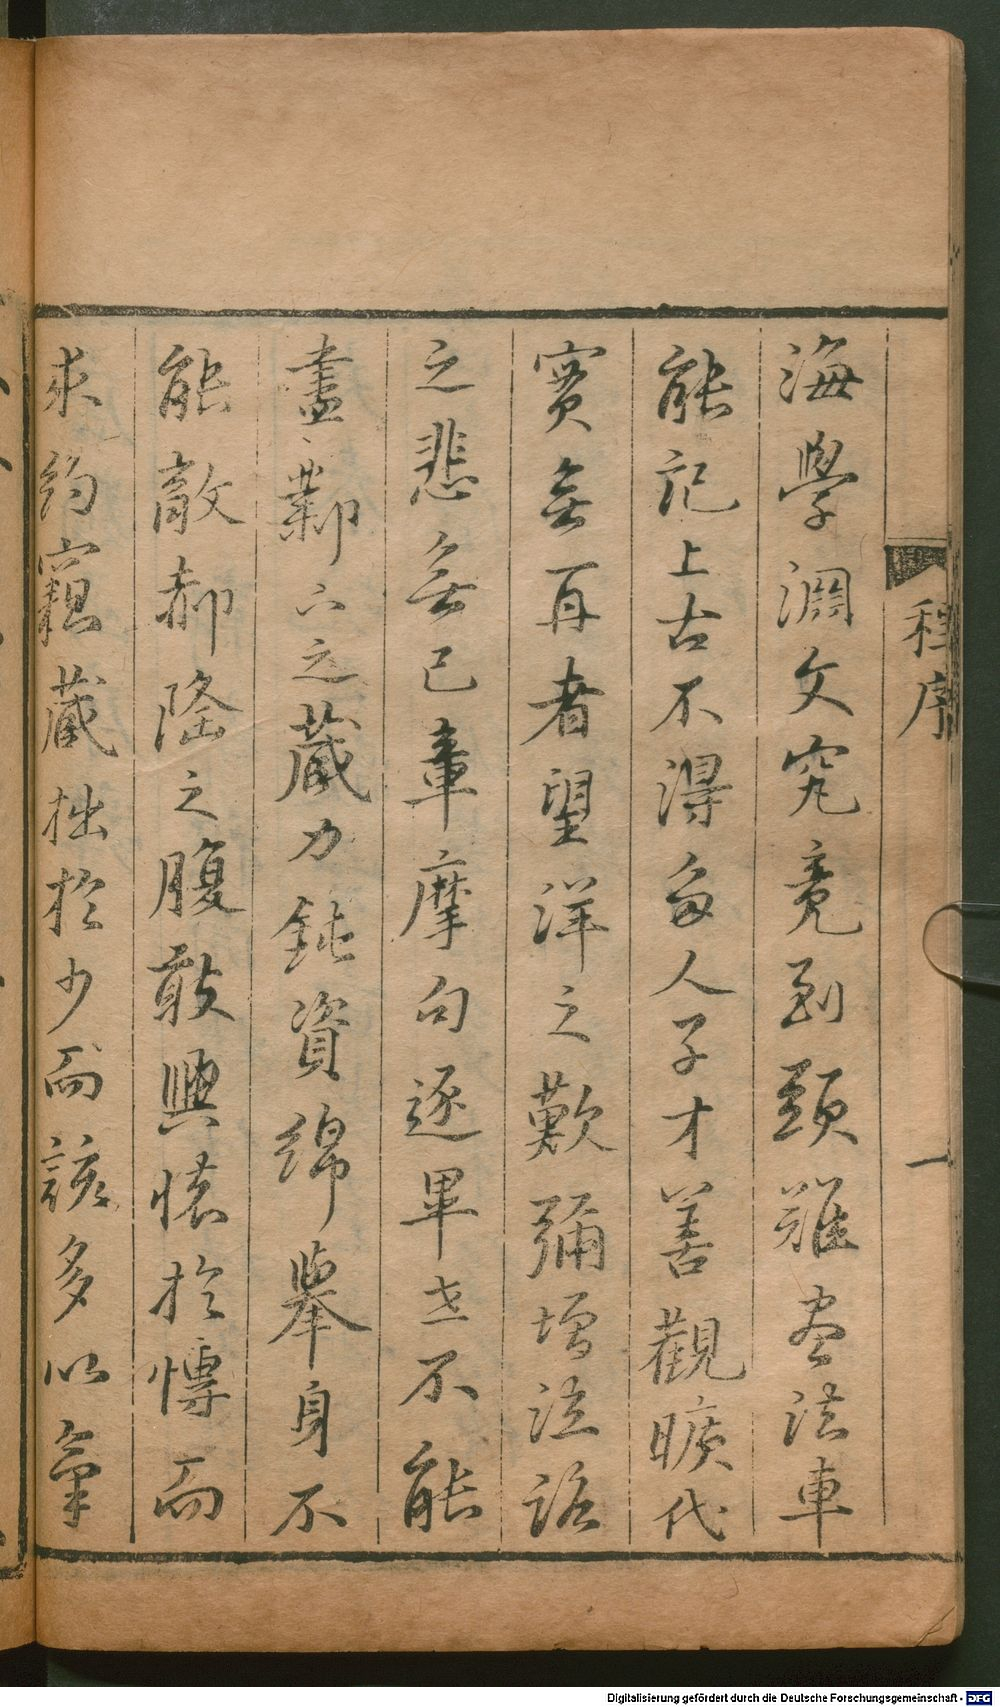 程序
一
海學淵文究竟到頭難盡法車
能記上古不得多人子才善觀曠代
實無再者望洋之歎彌增泣詻
之悲無已韋摩句逐畢世不能
盡鄴下之藏力鈍資綿舉身不
能敵郝隆之腹敢興懷於慱而
求約竊藏拙於少而該多以氣
Digitalisierung gefördert durch die Deutsche Forschungsgemeinschaft - DFG